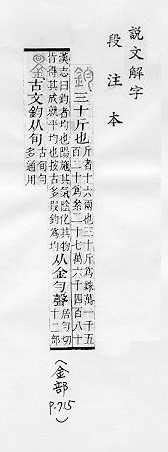 說文解字
段注本
鈞 三十斤也 斤者十六兩也三十斤爲銖萬一千五
百二十爲絫二十七萬六千四百八十
漢志曰鈞者均也陽施其氣陰化其物
皆得其成就平均也按古多叚鈞爲均 从金勻聲 居勻切
十二部
古文鈞从旬 古旬勻
多通用
(金部
P.715)